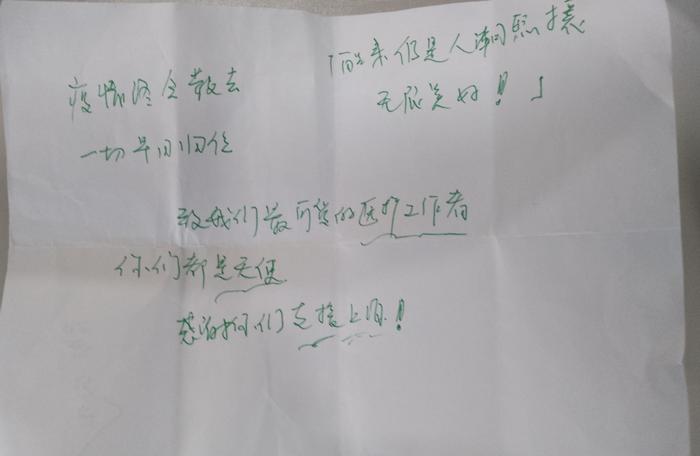 疫情终会散去
一切早日归位
「醒来仍是人潮的熙攘
无限美好！」
致我们最可贵的医护工作者
你们都是天使
感谢你们支援上海！